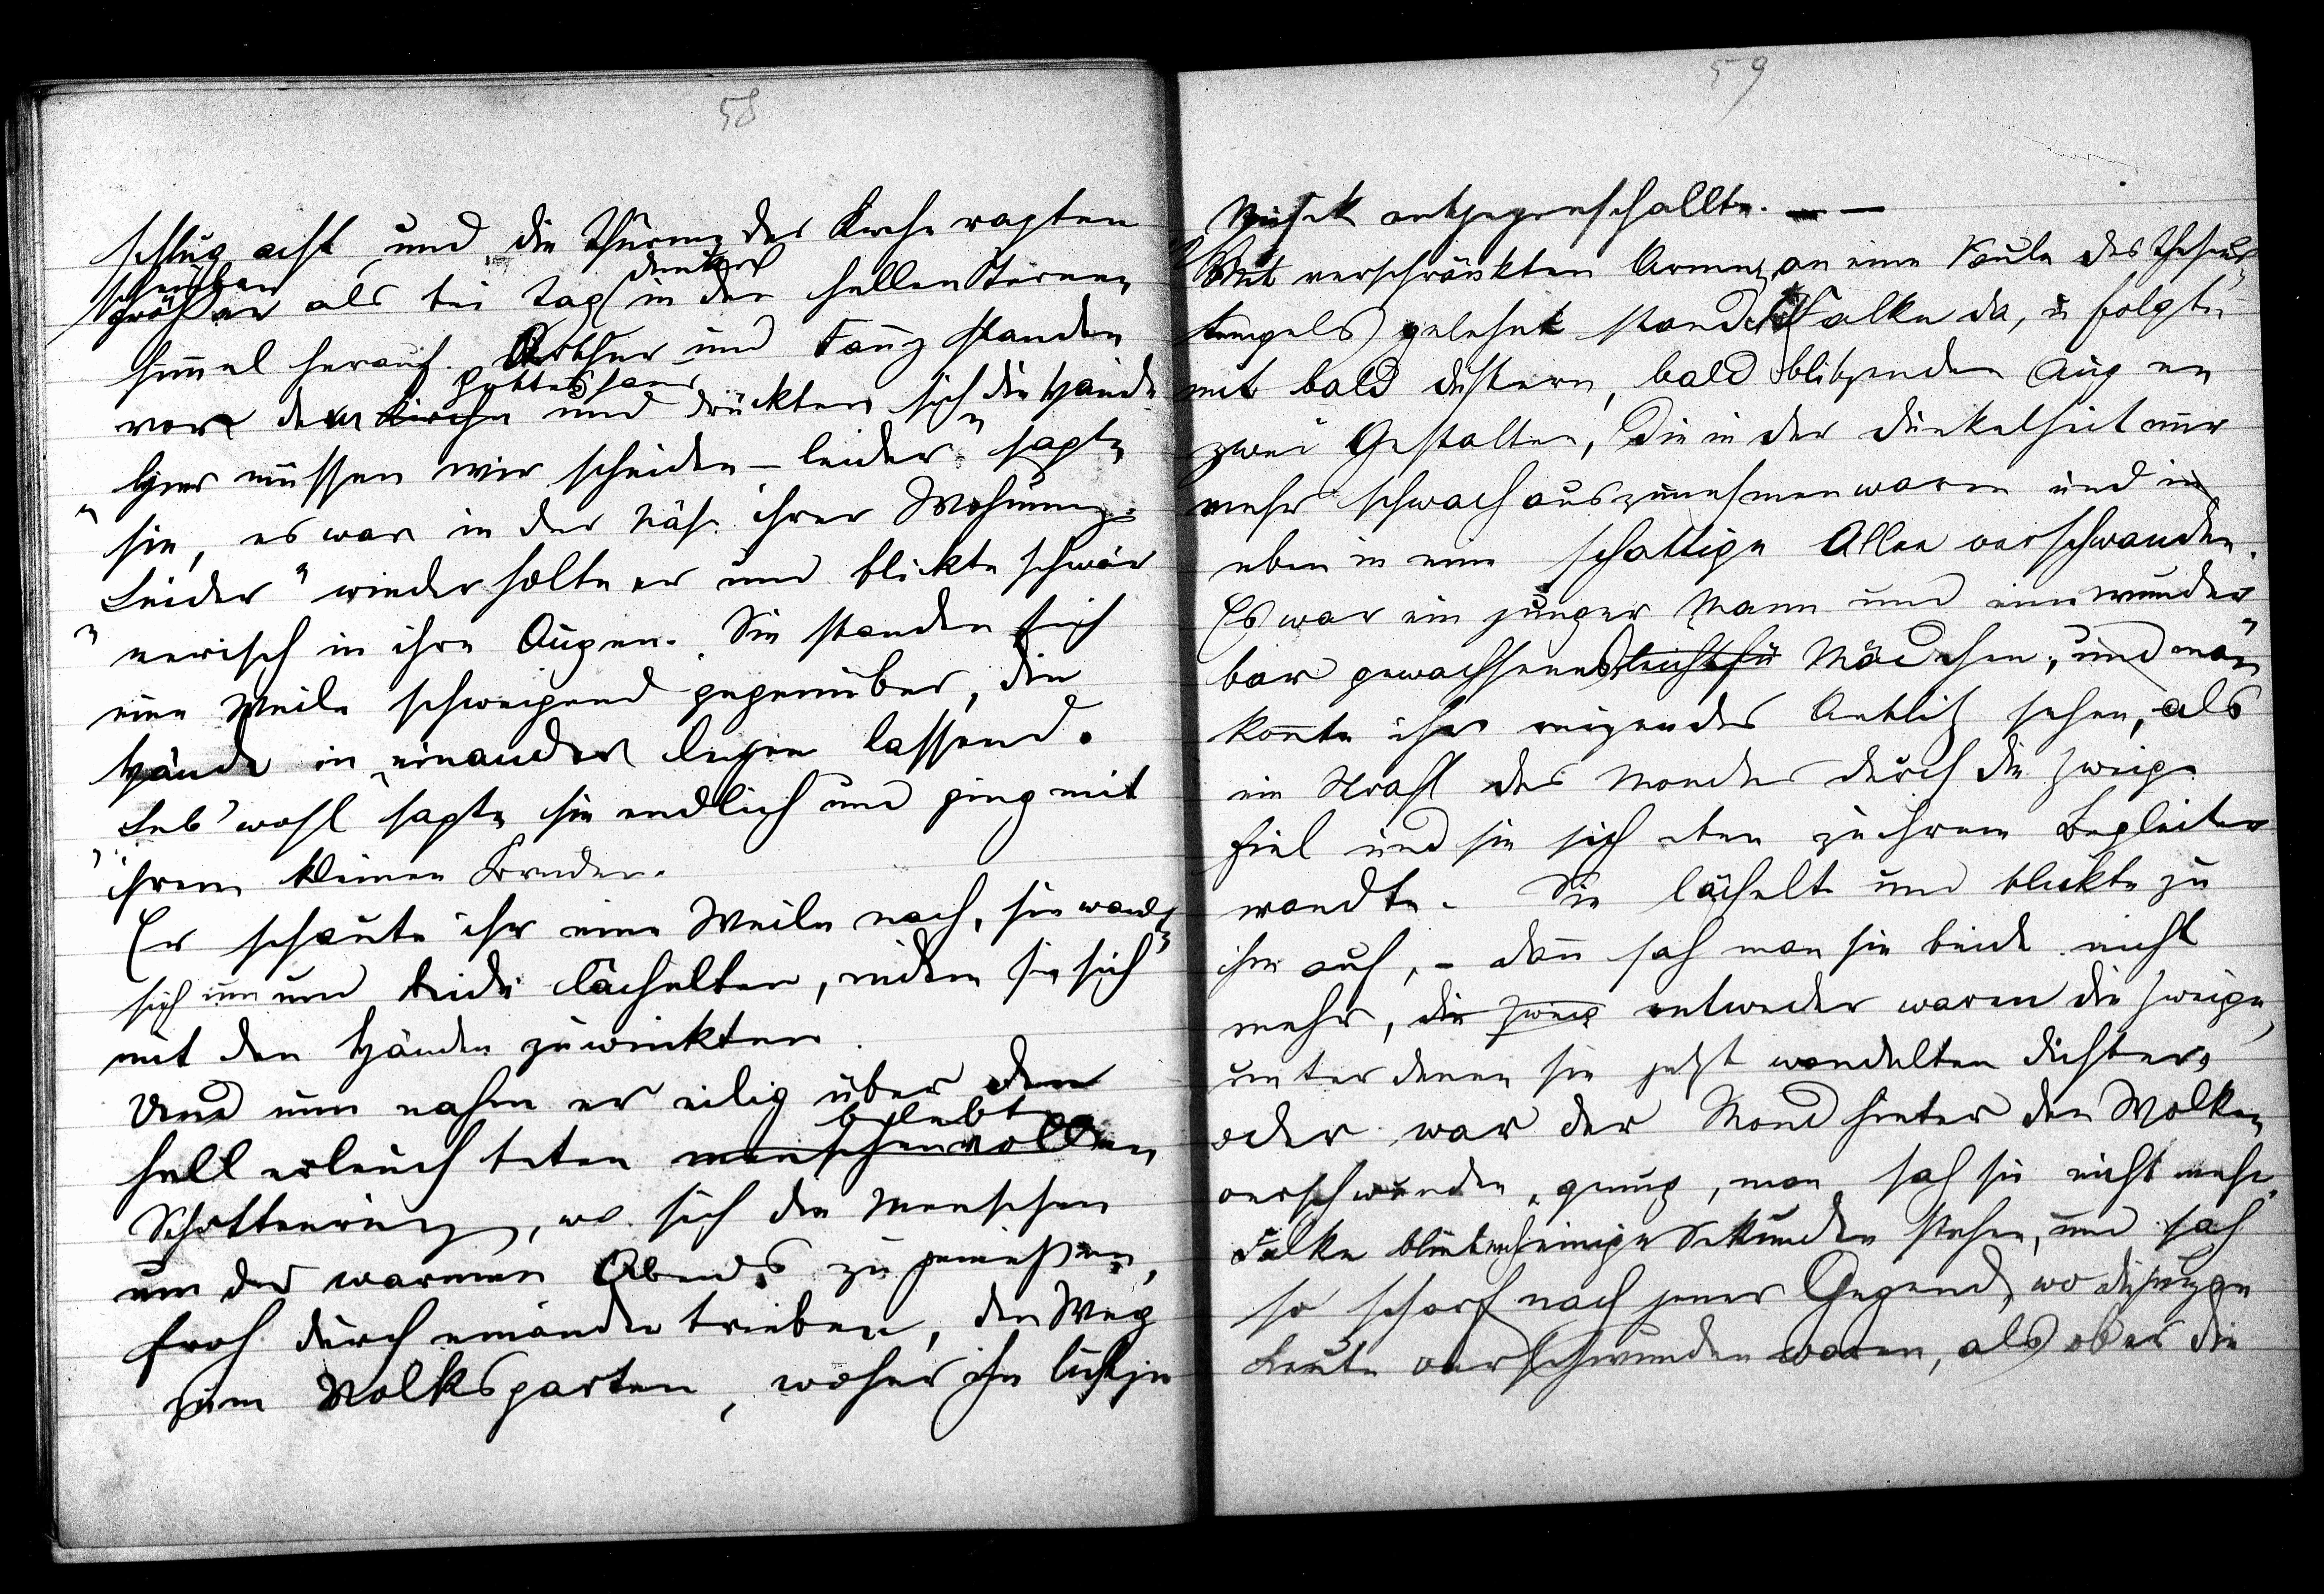 58
schlug acht und die Thürme der Kirche ragten
scheinbar
größer als bei Tag in den hellen Sternen
himmel herauf. Arthur und Fanny standen
Gotteshaus
vor dem Kirche und drückten sich die Hände
„Hier müssen wir scheiden – leider" sagte
sie, es war in der Nähe ihrer Wohnung.
„Leider" wiederholte er und blickte schwär
merisch in ihre Augen. Sie standen sich
eine Weile schweigend gegenüber, die
Hände in einander liegen lassend.
„Leb' wohl" sagte sie endlich und ging mit
ihrem kleinen Bruder.
Er schaute ihr eine Weile nach, sie wandte
sich um und beide lächelten, indem sie sich
mit den Händen zuwinkten.
Und nun nahm er eilig über den
belebten
hell erleuchteten menschenvollen
Schottenring, wo sich die Menschen
um des warmen Abends zu genießen,
froh durch einander trieben, den Weg
zum Volksgarten, woher ihm lustige
59
Musik entgegenschallte. — —
Mit verschränkten Armen, an eine Säule des Theseus
tempels gelehnt stand Falke da, u folgte
mit bald düstern, bald blitzenden Augen
zwei Gestalten, die in der Dunkelheit nur
mehr schwach auszunehmen waren und in
eben in eine schattige Allee verschwanden.
Es war ein junger Mann und ein wunder
bar gewachsenes Mädchen, und man
konnte ihr reizendes Antlitz sehen, als
ein Strahl des Mondes durch die Zweige
fiel und sie sich eben zu ihrem Begleiter
wandte. Sie lächelte und blickte zu
ihm auf, – dann sah man sie beide nicht
mehr, die Zweig entweder waren die Zweige,
unter denen sie jetzt wandelten dichter,
oder war der Mond hinter den Wolken
verschwunden, genug, man sah sie nicht mehr.
Falke blieb noch einige Sekunden stehen, und sah
so scharf nach jener Gegend, wo die jungen
Leute verschwunden waren, als ob er die